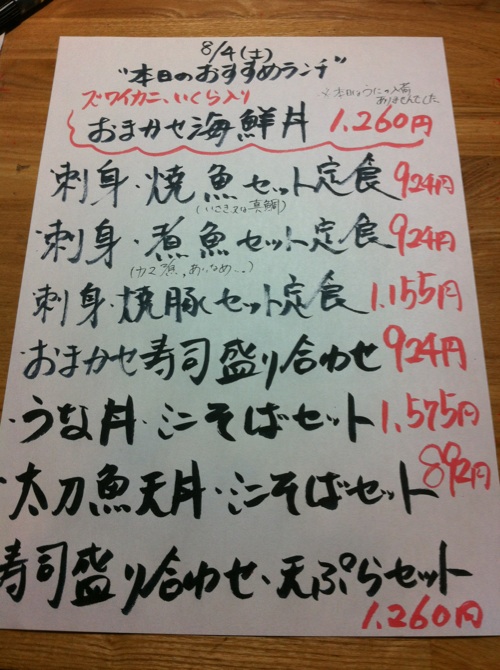 8/4(土)
"本日のおすすめランチ"
ズワイカニ、いくら入り
※本日うにの入荷
ありませんでした
おまかせ海鮮丼 1,260円
刺身・焼魚セット定食 924円
(いさき又は真鯛)
刺身・煮魚セット定食 924円
刺身・焼豚セット定食 1,155円
おまかせ寿司盛り合わせ 924円
・うな丼・ミニそばセット 1,575円
・太刀魚天丼・ミニそばセット 892円
寿司盛り合わせ・天ぷらセット
1,260円